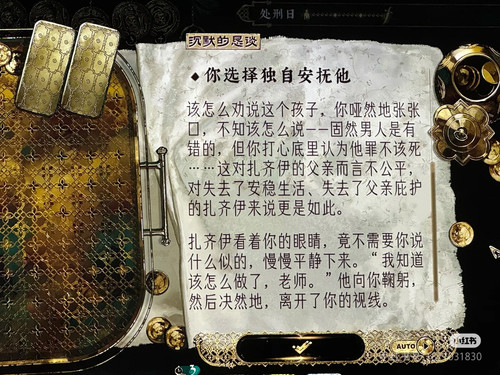 处刑日
沉默的恳谈
◆你选择独自安抚他
该怎么劝说这个孩子，你哑然地张张
口，不知该怎么说——固然男人是有
错的，但你打心底里认为他罪不该死
……这对扎齐伊的父亲而言不公平，
对失去了安稳生活、失去了父亲庇护
的扎齐伊来说更是如此。
扎齐伊看着你的眼睛，竟不需要你说
什么似的，慢慢平静下来。“我知道
该怎么做了，老师。”他向你鞠躬，
然后决然地，离开了你的视线。
AUTO
小红书
3